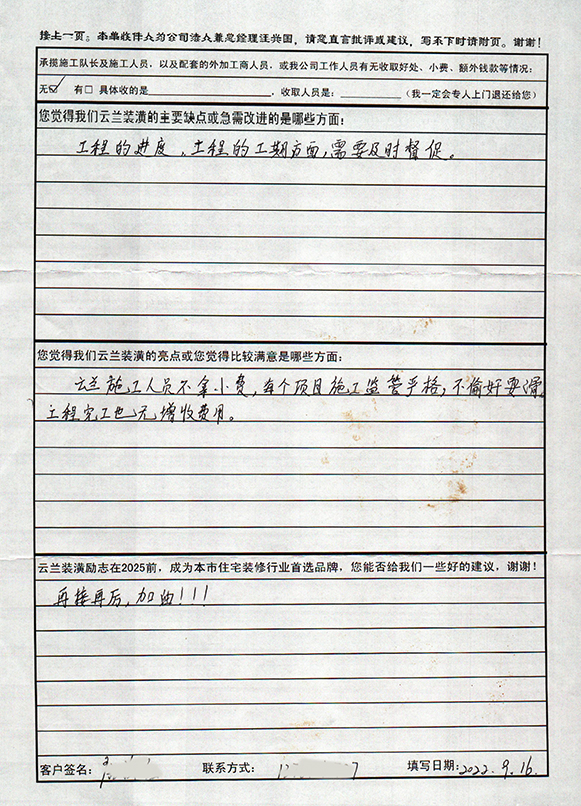 接上一页。本单收件人为公司法人兼总经理汪兴国,请您直言批评或建议,写不下时请附页。谢谢!
承揽施工队长及施工人员,以及配套的外加工商人员,或我公司工作人员有无收取好处、小费、额外钱款等情况:
无☑ 有□ 具体收的是________,收取人员是:________(我一定会专人上门退还给您)
您觉得我们云兰装潢的主要缺点或急需改进的是哪些方面:
工程的进度、工程的工期方面,需要及时督促。
您觉得我们云兰装潢的亮点或您觉得比较满意是哪些方面:
云兰施工人员不拿小费,每个项目施工监管严格,不偷奸耍滑,
工程完工也无增收费用。
云兰装潢励志在2025前,成为本市住宅装修行业首选品牌,您能否给我们一些好的建议,谢谢!
再接再厉,加油!!!
客户签名: 联系方式: 填写日期:2022.9.16.